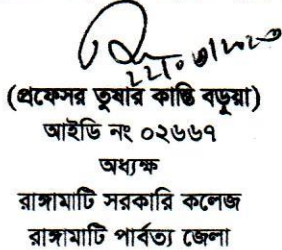 (প্রফেসর তুষার কান্তি বড়ুয়া)
আইডি নং ০২৬৬৭
অধ্যক্ষ
রাঙ্গামাটি সরকারি কলেজ
রাঙ্গামাটি পার্বত্য জেলা